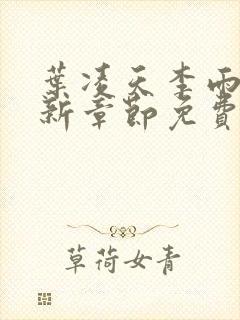 葉凌天李雨
新章節免費
草荷女青